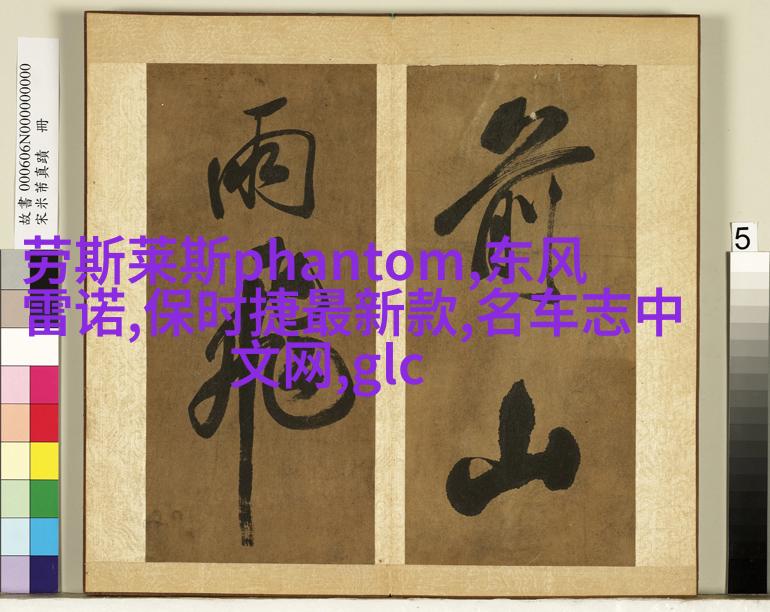 劳斯莱斯phantom,东风
雷诺,保时捷最新款,名车志中
文网,glc
前
山
雨
飛
故書 000606N000000000
宋米芾真蹟 冊
5